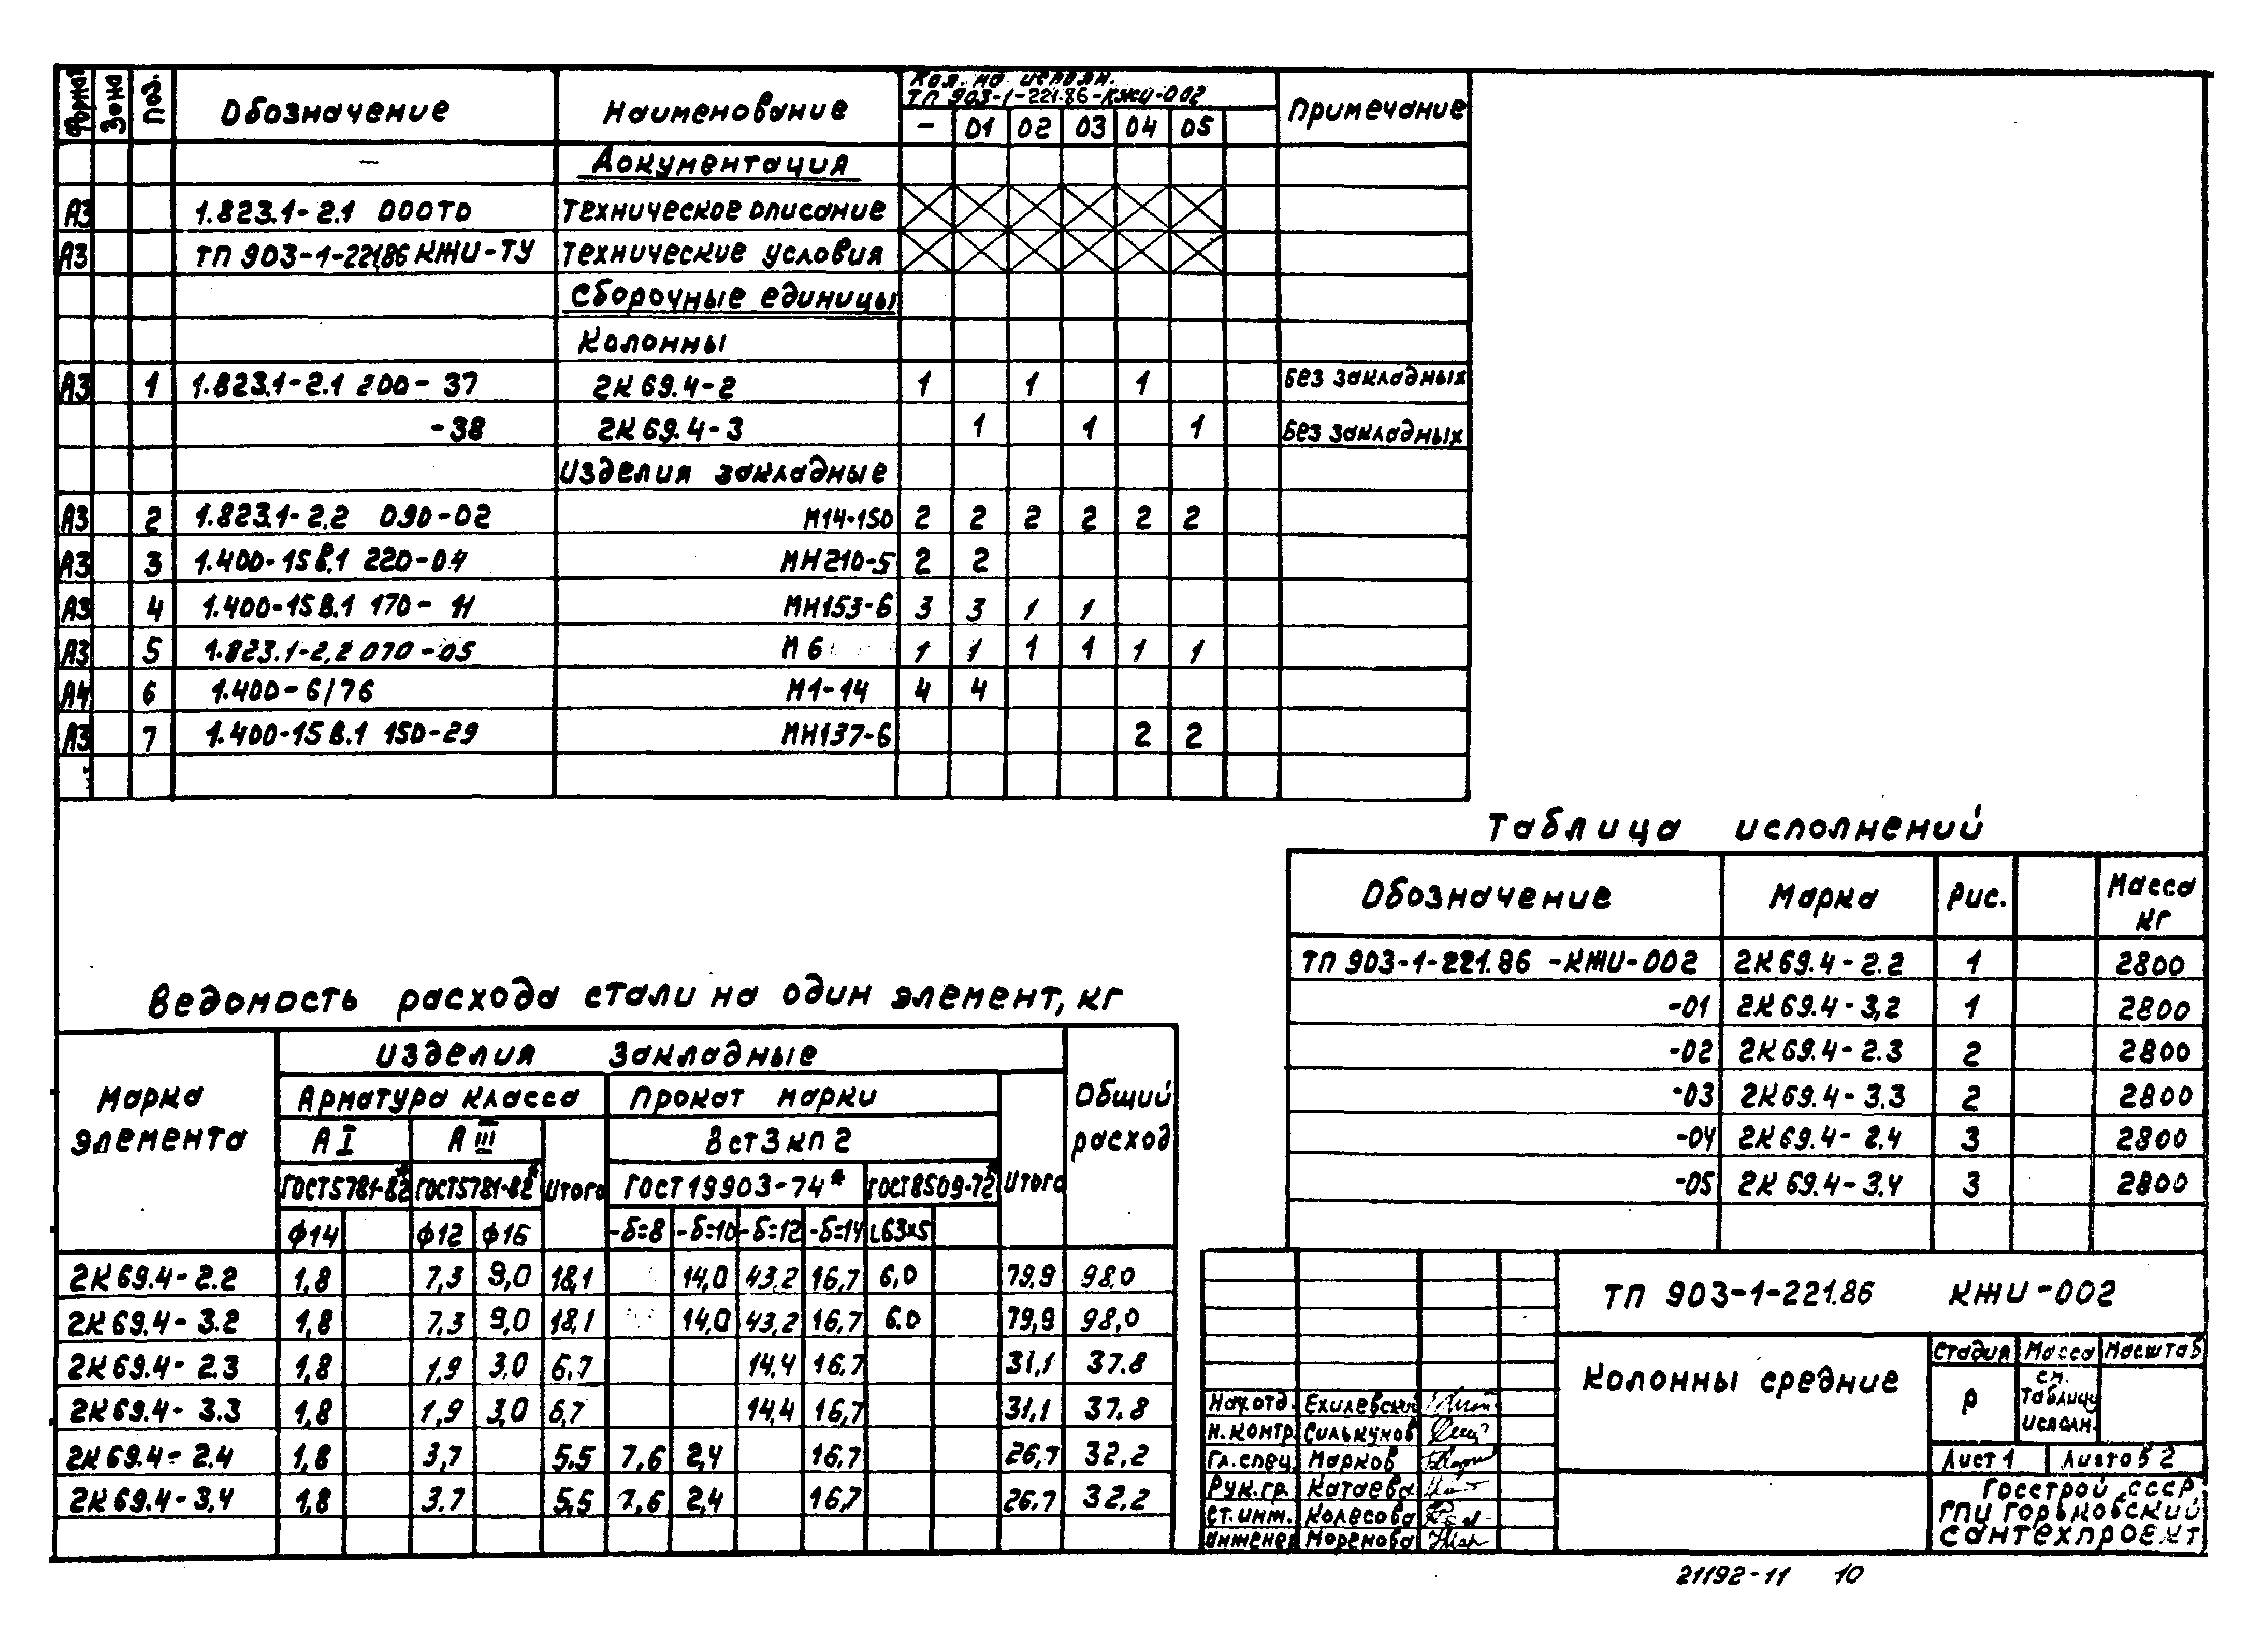 Формат Зона Поз. Обозначение Наименование Кол. на исполн. Примечание
ТП 903-1-221.86-КЖИ-002
- 01 02 03 04 05
— Документация
А3 1.823.1-2.1 000ТО Техническое описание
А3 ТП 903-1-221.86 КЖИ-ТУ Технические условия
Сборочные единицы
Колонны
А3 1 1.823.1-2.1 200-37 2К69.4-2 1 1 1 Без закладных
-38 2К69.4-3 1 1 1 Без закладных
Изделия закладные
А3 2 1.823.1-2.2 090-02 М14-150 2 2 2 2 2 2
А3 3 1.400-15В.1 220-04 МН210-5 2 2
А3 4 1.400-15В.1 170-11 МН153-6 3 3 1 1
А3 5 1.823.1-2.2 070-05 М6 1 1 1 1 1 1
А4 6 1.400-6/76 М1-14 4 4
А3 7 1.400-15В.1 150-29 МН137-6 2 2
Таблица исполнений
Обозначение Марка Рис. Масса кг
ТП 903-1-221.86-КЖИ-002 2К69.4-2.2 1 2800
-01 2К69.4-3,2 1 2800
-02 2К69.4-2.3 2 2800
-03 2К69.4-3.3 2 2800
-04 2К69.4-2.4 3 2800
-05 2К69.4-3.4 3 2800
Ведомость расхода стали на один элемент, кг
Марка элемента Изделия закладные Общий расход
Арматура класса Прокат марки
АI АIII Вст3кп2
ГОСТ5781-82* ГОСТ5781-82* Итого ГОСТ19903-74* ГОСТ8509-72* Итого
ф14 ф12 ф16 -δ=8 -δ=10 -δ=12 -δ=14 L63х5
2К69.4-2.2 1,8 7,3 9,0 18,1 14,0 43,2 16,7 6.0 79,9 98,0
2К69.4-3.2 1,8 7,3 9,0 18,1 14,0 43,2 16,7 6.0 79,9 98,0
2К69.4-2.3 1,8 1,9 3,0 6,7 14,4 16,7 31,1 37.8
2К69.4-3.3 1,8 1,9 3,0 6,7 14,4 16,7 31,1 37.8
2К69.4-2.4 1,8 3,7 5,5 7,6 2,4 16,7 26,7 32,2
2К69.4-3,4 1,8 3.7 5,5 7,6 2,4 16,7 26,7 32.2
ТП 903-1-221.86 КЖИ-002
Колонны средние
Стадия Масса Масштаб
Р см. таблицу исполн.
Лист 1 Листов 2
Нач.отд. Ехилевский
Н.контр. Силькунов
Гл.спец. Марков
Рук.гр. Катаева
Ст.инж. Колесова
Инженер Моренова
Госстрой СССР
ГПИ Горьковский
Сантехпроект
21192-11 10